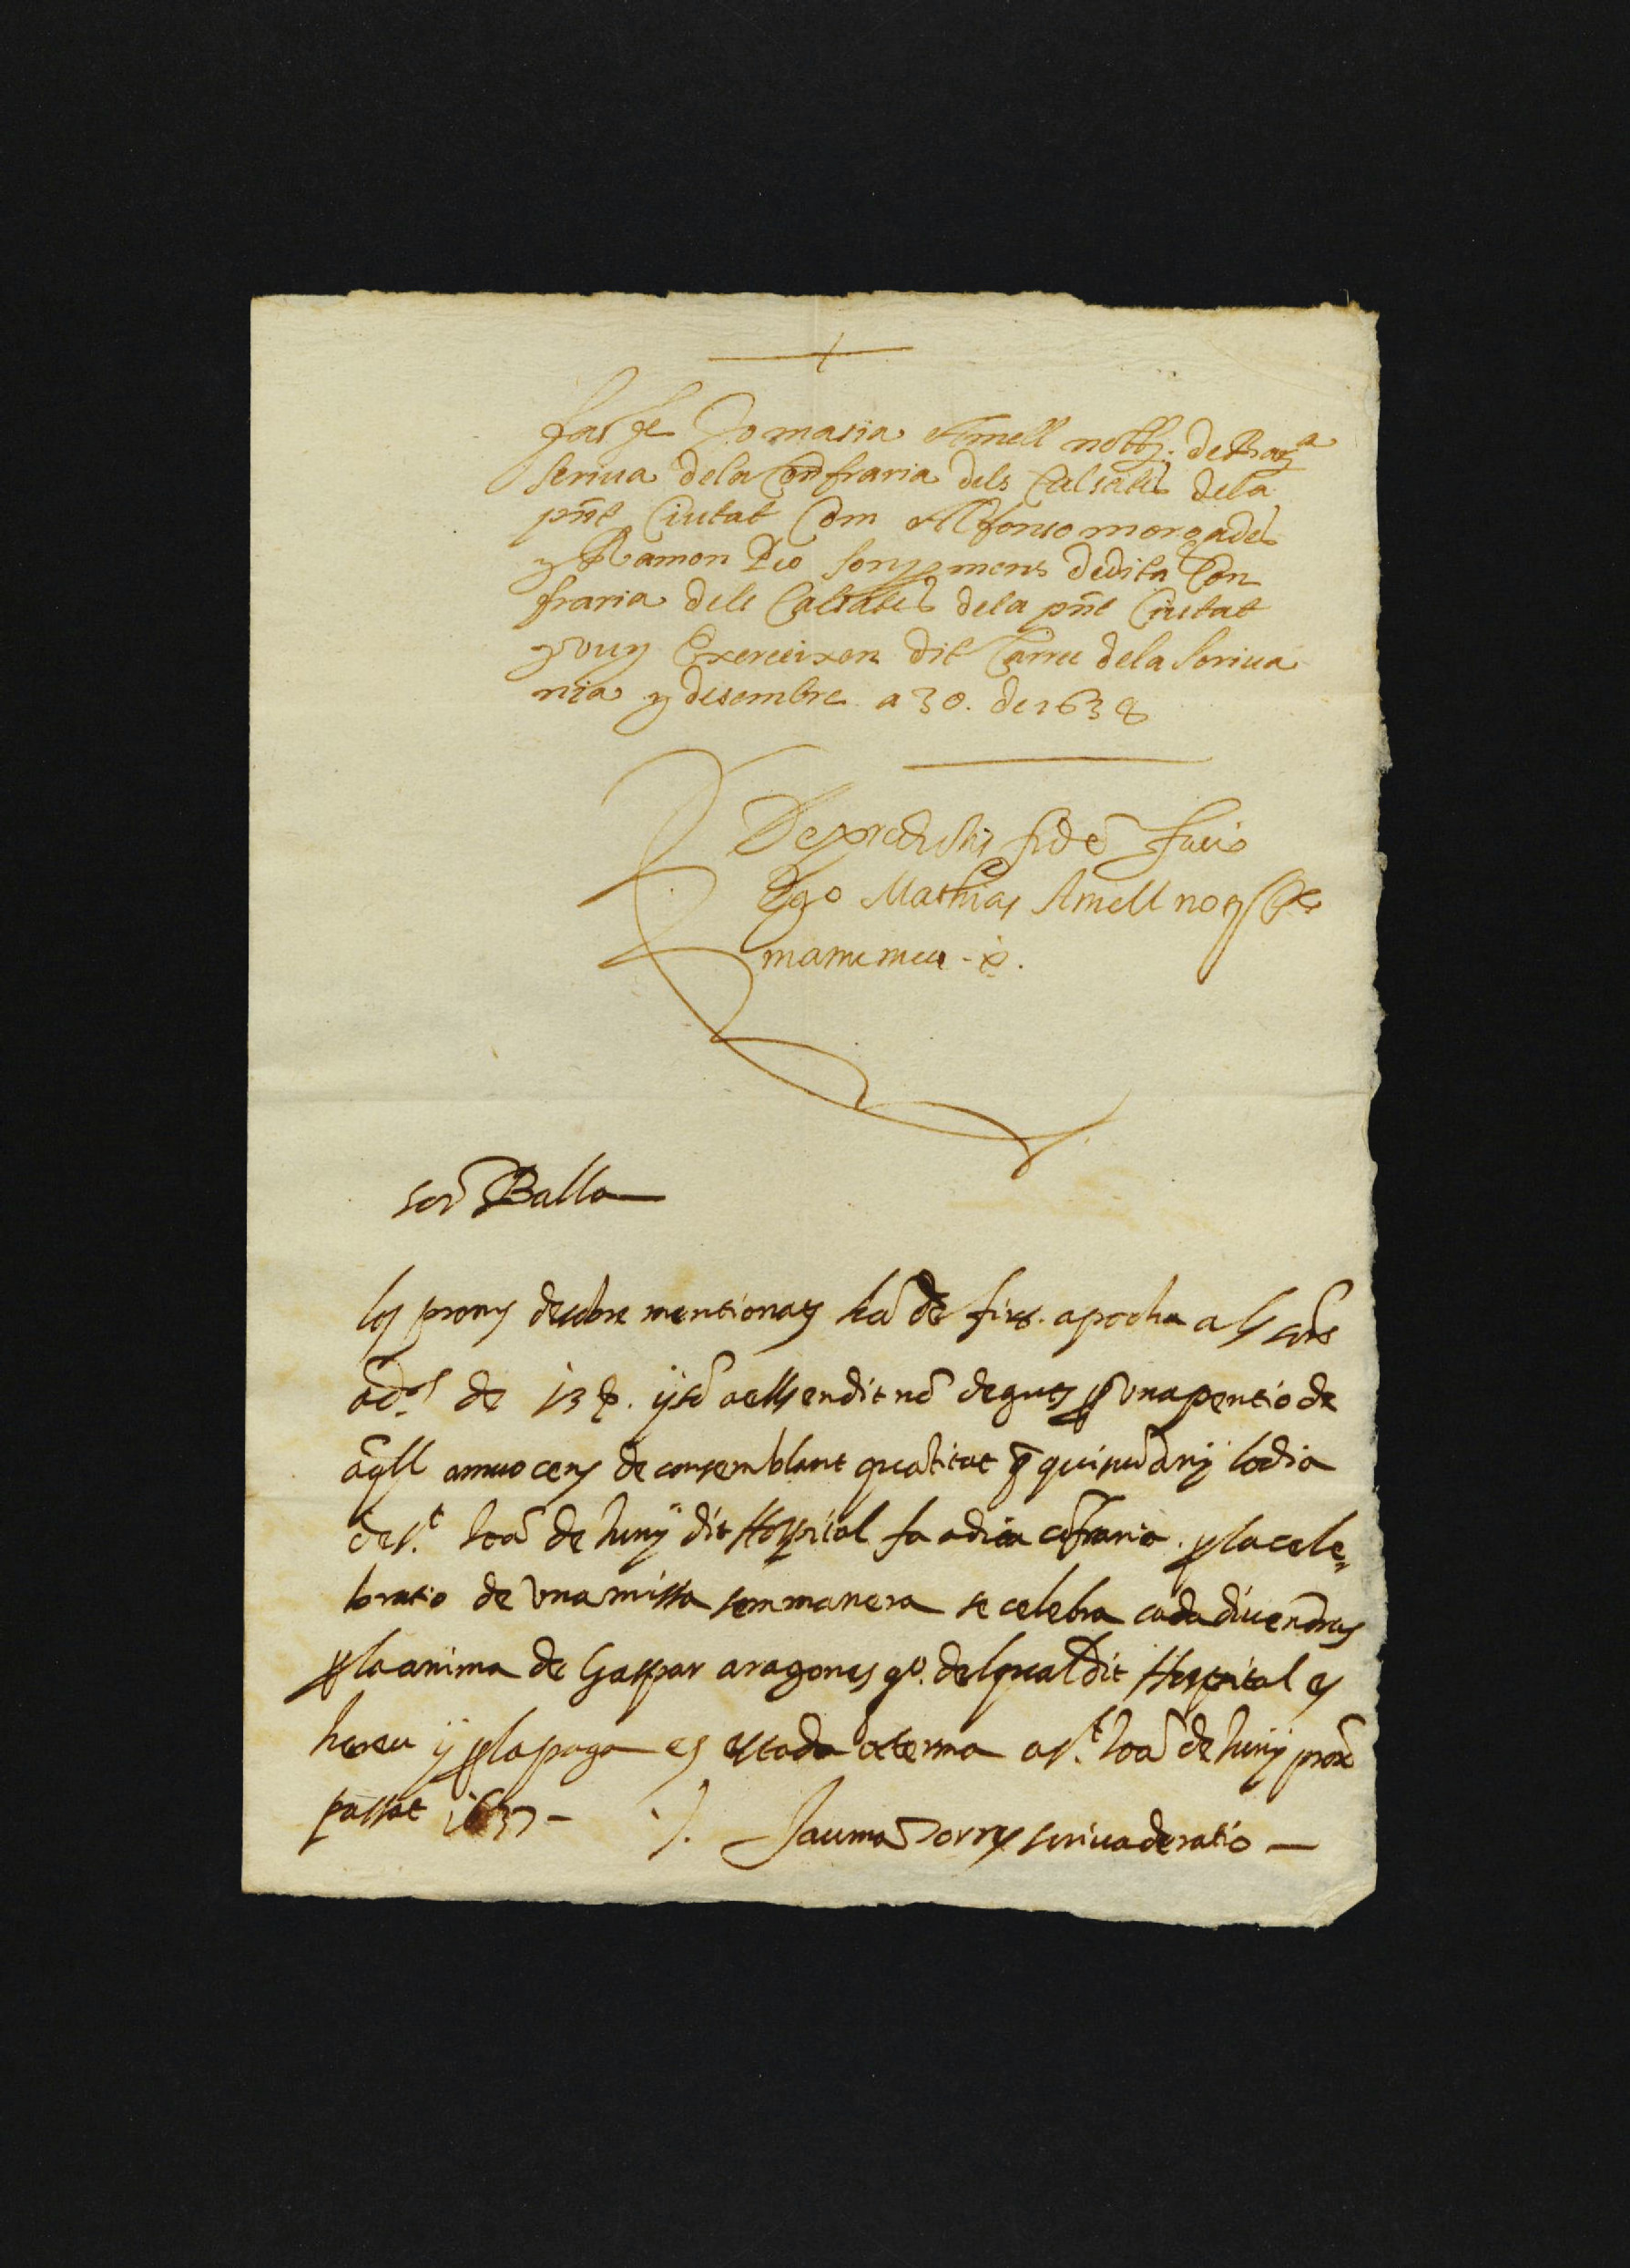 fas fe Jo masia Amell notj. de Barᵃ
scriua dela Confraria dels Calsates dela
pnt Ciutat Com Alfonso morgades
y Ramon Pio son promens de dita Con
fraria dels Calsates dela pnt Ciutat
y vuy Exerceixen dit Carrec dela scriua
nia y desembre a 30. de 1638
De predictis fidē facio
Ego Mathias Amell noty
manu mea
sor Balla
los promens desobre mentionats hā de fir. apocha als sors
de 13 ll. y sō a ells en dit nō deguts per una pentio de
aqll annuo cens de consemblant quātitat q̄ quiscū āny lo dia
de sᵗ Joā de Juny dit Hospital fa a dita cōfraria. per la cele
bratio de una missa semmanera se celebra cada divendres
per la anima de Gaspar aragones qº. del qual dit Hospital es
hereu y per la paga es estada de terme a sᵗ Joā de Juny prox
passat 1637 - Jauma Torres scriua de ratio